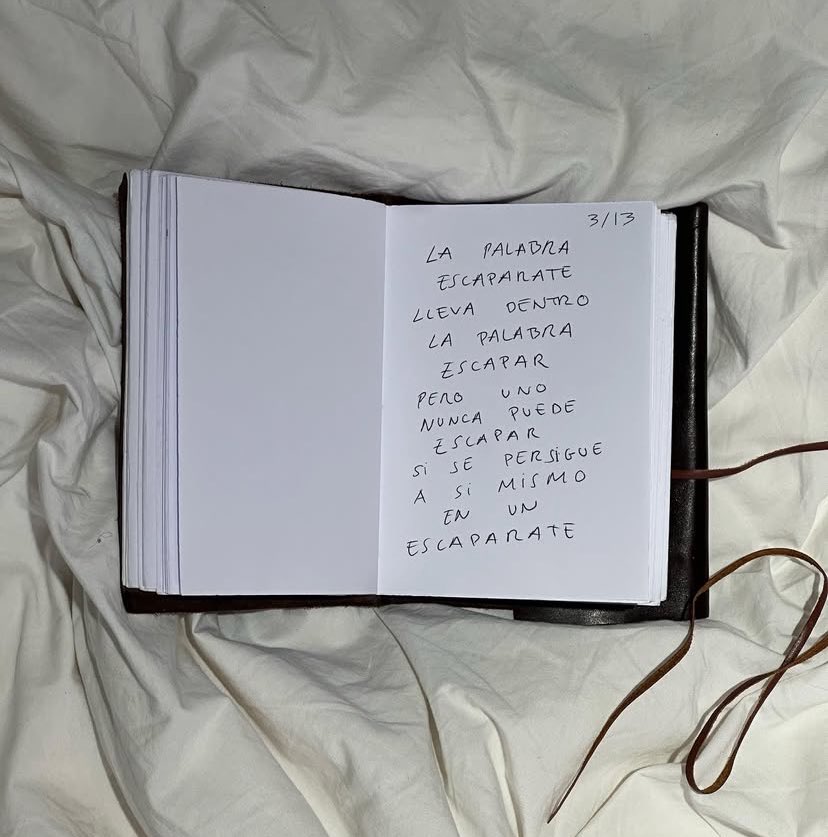 3/13
LA PALABRA
ESCAPARATE
LLEVA DENTRO
LA PALABRA
ESCAPAR
PERO UNO
NUNCA PUEDE
ESCAPAR
Si SE PERSiGUE
A Si MiSMO
EN UN
ESCAPARATE